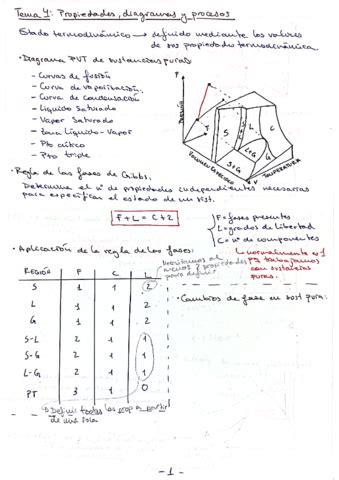 Tema 4: Propiedades, diagramas y procesos
Estado termodinámico → definido mediante los valores
de sus propiedades termodinámica
• Diagrama PVT de sustancias puras:
- Curvas de fusión
- Curva de vaporización
- Curva de condensación
- Líquido saturado
- Vapor Saturado
- Zona Líquido-Vapor
- Pto crítico
- Pto triple
P
PRESIÓN
S
L
C
L+G
G
S+G
V
TEMPERATURA
• Regla de las fases de Gibbs.
Determina el nº de propiedades independientes necesarias
para especificar el estado de un sist.
F + L = C + 2
F = fases presentes
L = grados de libertad
C = nº de componentes
↳ normalmente es 1
pq trabajamos
con sustancias
puras.
• Aplicación de la regla de las fases:
REGIÓN F C L
Necesitamos al
menos 2 propiedades
para definir
S 1 1 2
L 1 1 2
G 1 1 2
S-L 2 1 1
S-G 2 1 1
L-G 2 1 1
PT 3 1 0
• Cambios de fase en sust pura:
Definir todas las prop a partir
de una sola
- 1 -